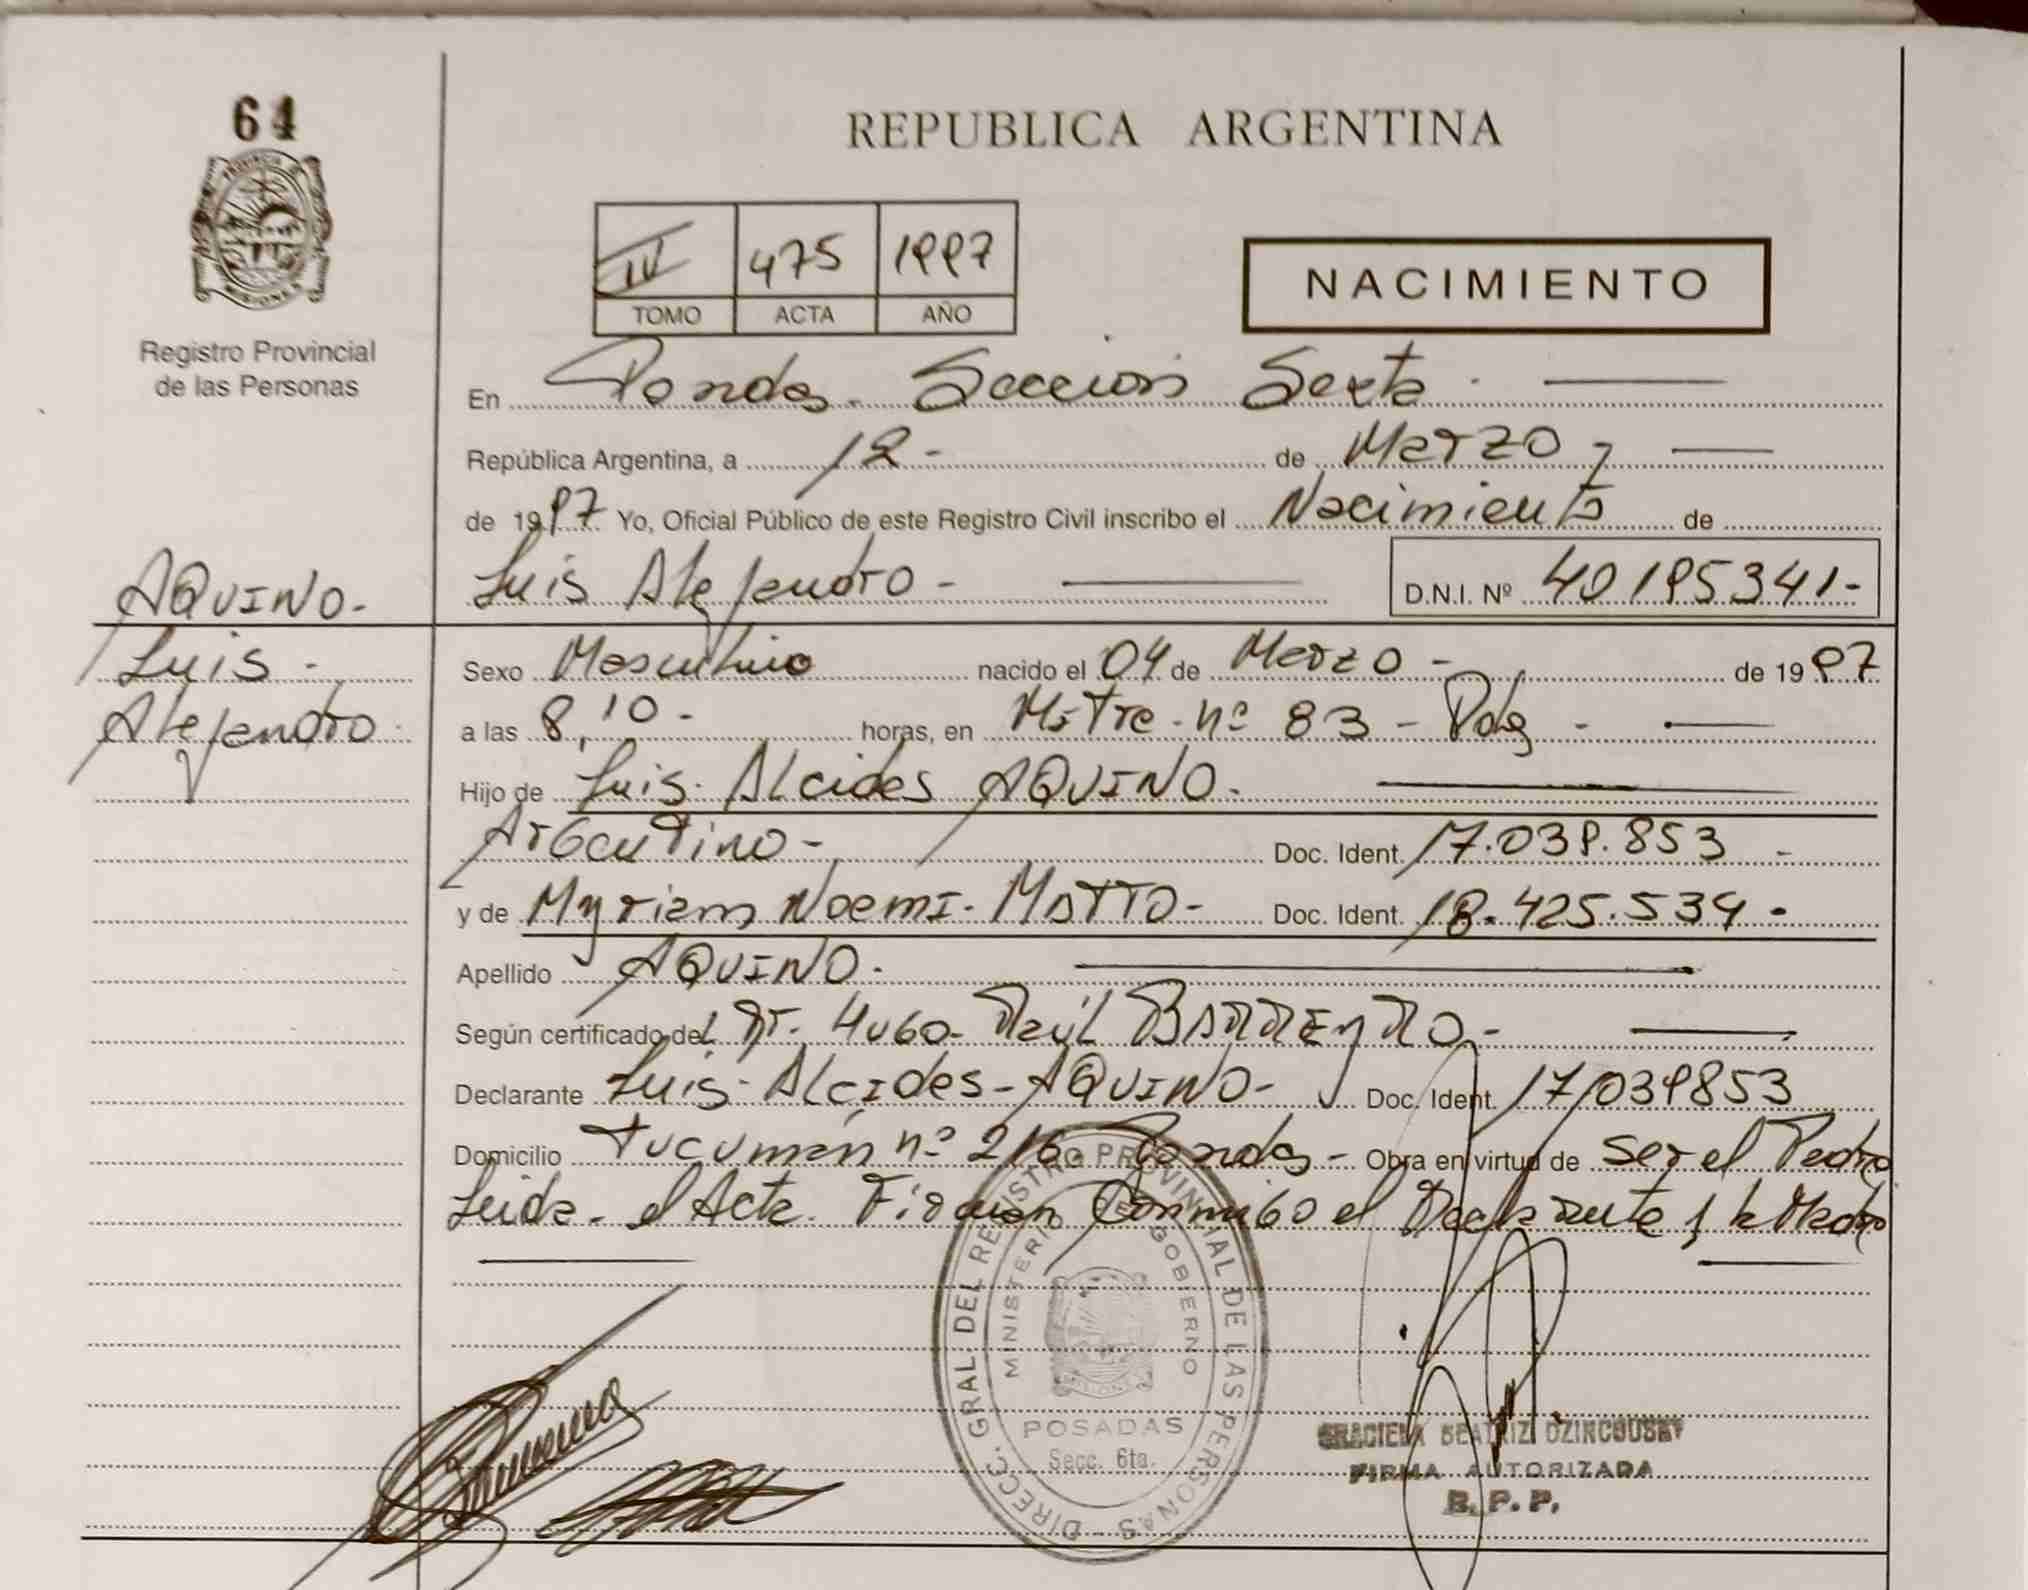 64
PROVINCIA
MISIONES
Registro Provincial
de las Personas
REPUBLICA ARGENTINA
IV 475 1997
TOMO ACTA AÑO
NACIMIENTO
En Posadas - Sección Sexta.
República Argentina, a 12 - de Marzo
de 1997 Yo, Oficial Público de este Registro Civil inscribo el Nacimiento de
AQUINO -
Luis Alejandro - D.N.I. Nº 40195341-
Luis -
Alejandro.
Sexo Masculino nacido el 04 de Marzo - de 1997
a las 8,10 - horas, en Mitre - nº 83 - Pdas -
Hijo de Luis - Alcides AQUINO -
Argentino - Doc. Ident. 17.039.853 -
y de Myriam Noemi - MATTO - Doc. Ident. 18.425.534 -
Apellido AQUINO -
Según certificado del Dr. Hugo - Raúl BARREYRO -
Declarante Luis - Alcides - AQUINO - Doc. Ident. 17/039853
Domicilio Tucumán nº 216 Posadas - Obra en virtud de ser el Padre
Leida - el Acta. Firman Conmigo el Declarante y la Madre
DIRECC. GRAL. DEL REGISTRO PROVINCIAL DE LAS PERSONAS -
MINISTERIO DE GOBIERNO
MISIONES
POSADAS
Secc. 6ta.
GRACIELA BEATRIZ DZINCOUSKY
FIRMA AUTORIZADA
R. P. P.